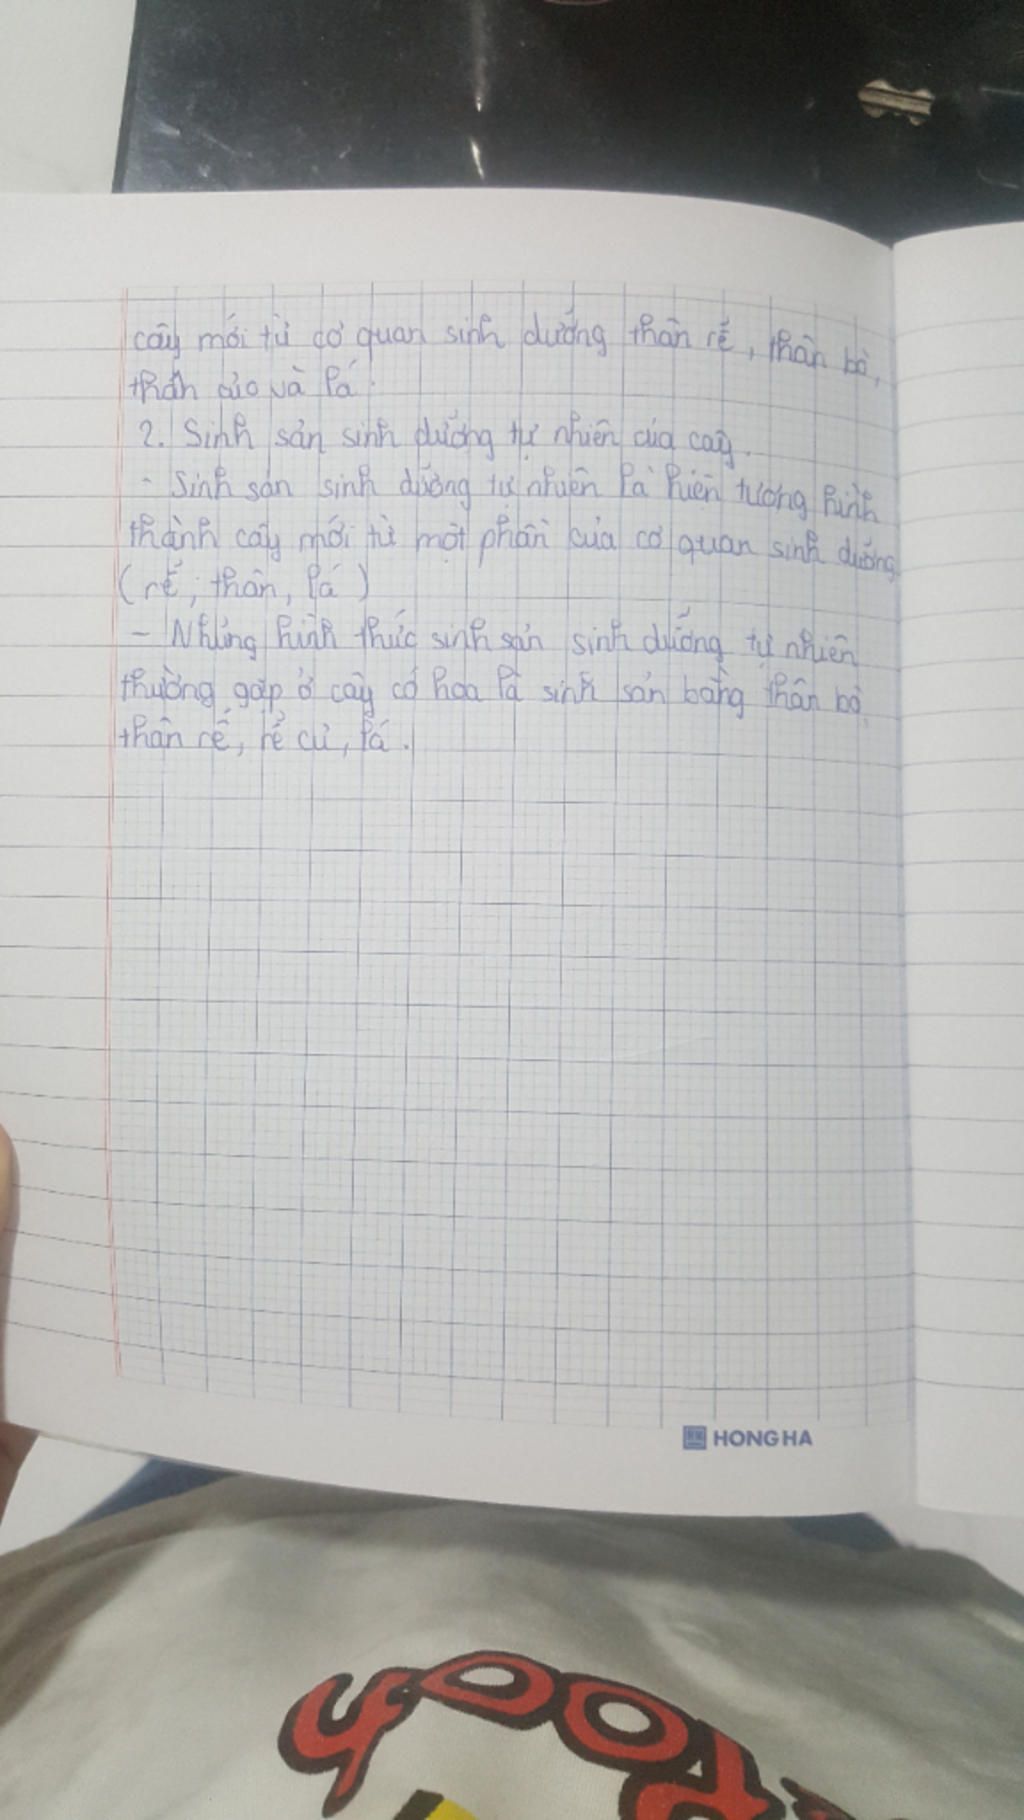 cây mới từ cơ quan sinh dưỡng thân rễ, thân bò,
thân củ và lá.
2. Sinh sản sinh dưỡng tự nhiên của cây.
- Sinh sản sinh dưỡng tự nhiên là hiện tượng hình
thành cây mới từ một phần của cơ quan sinh dưỡng
(rễ, thân, lá)
- Những hình thức sinh sản sinh dưỡng tự nhiên
thường gặp ở cây có hoa là sinh sản bằng thân bò
thân rễ, rễ củ, lá.
HONG HA